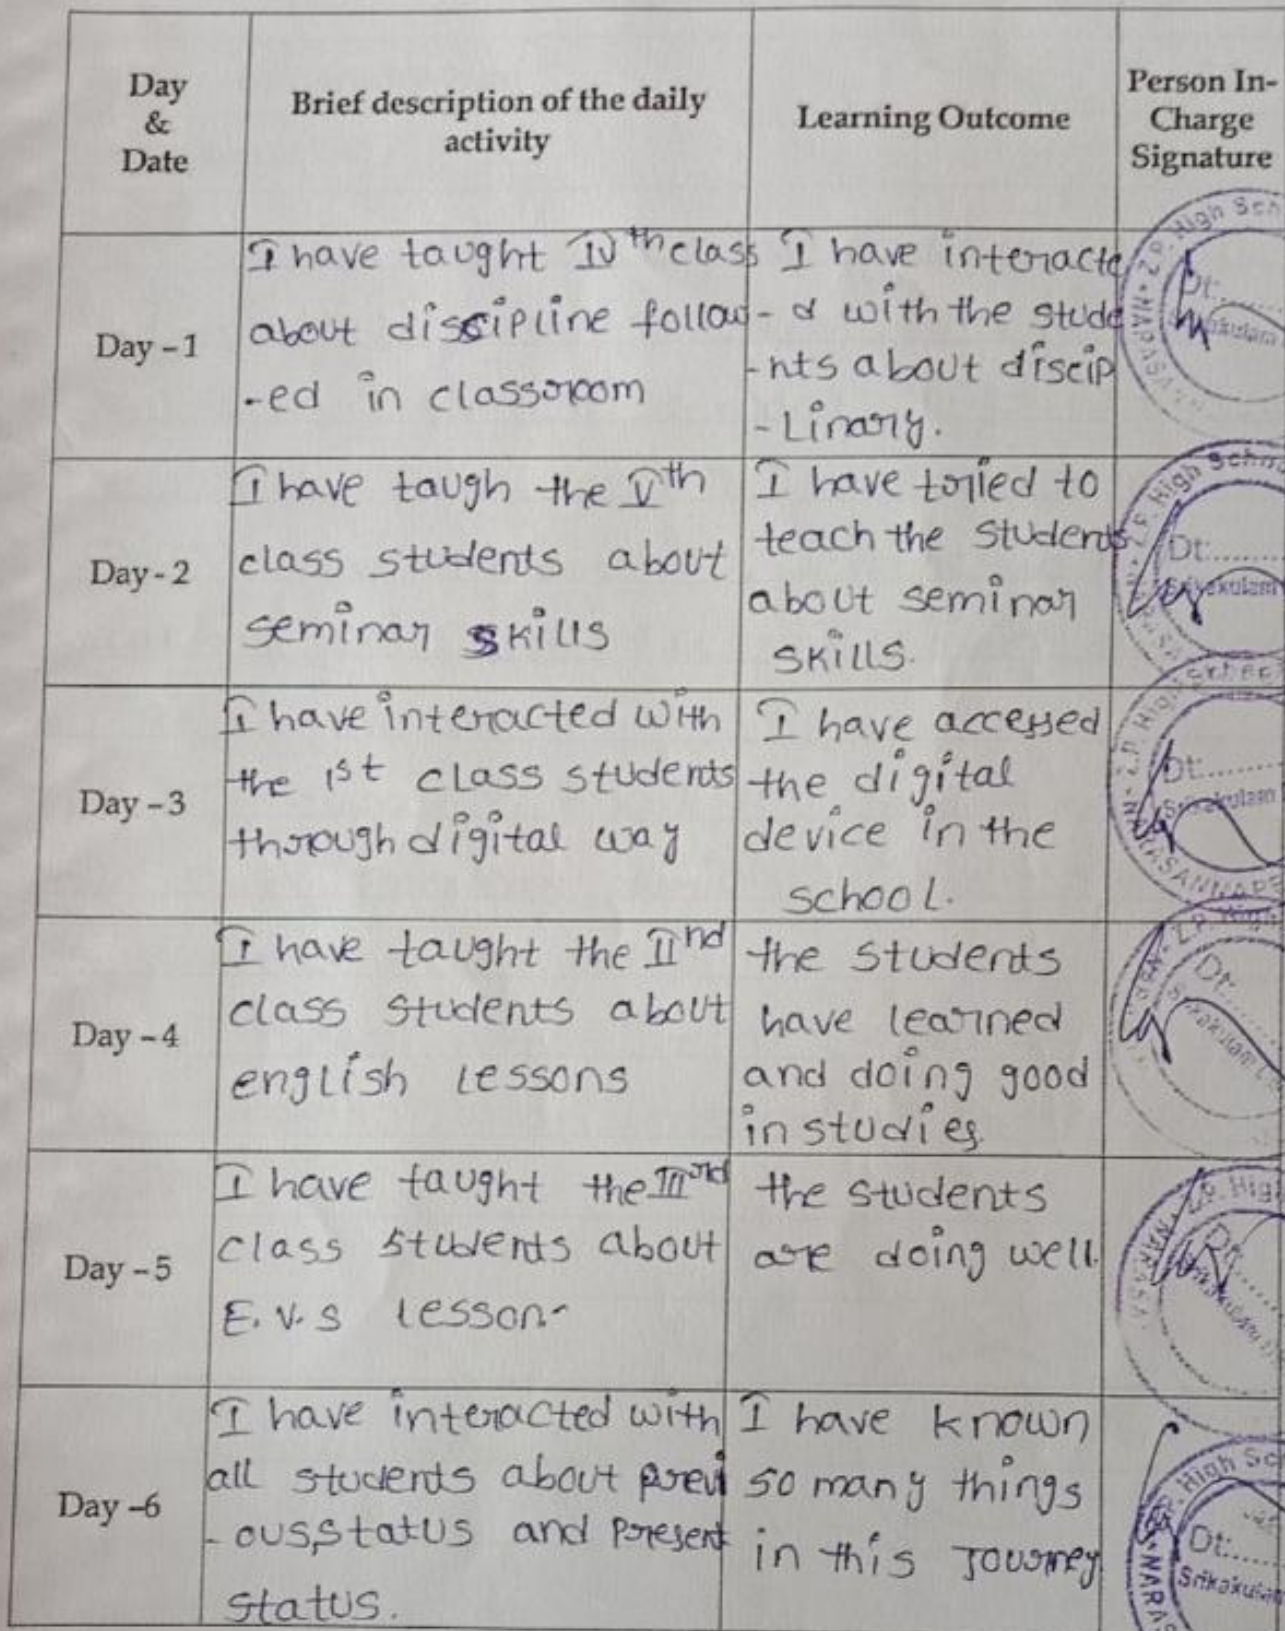 Day
&
Date
Brief description of the daily
activity
Learning Outcome
Person In-
Charge
Signature
Day - 1
I have taught IVth class
about discipline follow
-ed in classroom
I have interacte
- d with the stude
-nts about discip
- Linary.
Z.P. High Sch
NARASA
Dt:......
Srikakulam
Day - 2
I have taugh the Vth
class students about
seminar skills
I have tried to
teach the students
about seminar
skills.
Z.P. High Scho
Dt:......
Srikakulam
Day - 3
I have interacted with
the 1st class students
through digital way
I have accessed
the digital
device in the
school.
Z.P. High Schoo
Dt:......
Srikakulam
NARASANNAPE
Day - 4
I have taught the IInd
class students about
english lessons
the students
have learned
and doing good
in studies.
Z.P. High
Dt:......
Srikakulam
Day - 5
I have taught the IIIrd
class students about
E.V.S lesson-
the students
are doing well.
Z.P. High
NARASA
Dt:......
Srikakulam
Day -6
I have interacted with
all students about previ
- ous status and present
status.
I have known
so many things
in this Journey
Z.P. High Sc
Dt:......
Srikakulam
NARAS